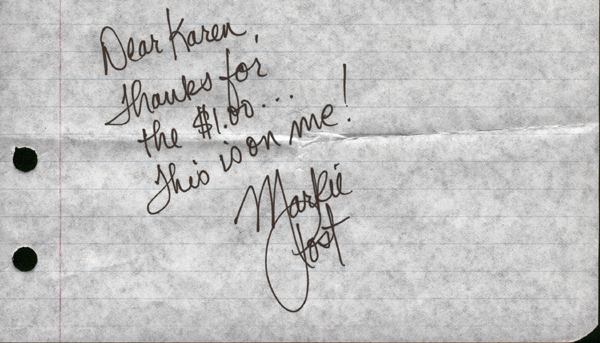 Dear Karen,
Thanks for
the $1.00...
This is on me!
Markie
Post